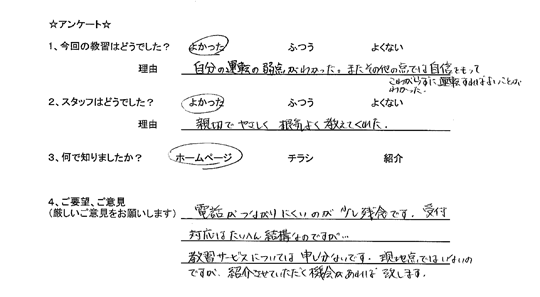 ☆アンケート☆
1、今回の教習はどうでした? よかった ふつう よくない
理由 自分の運転の弱点がわかった。またその他の点では自信をもって
これからずに運転すればよいことが
わかった.
2、スタッフはどうでした? よかった ふつう よくない
理由 親切でやさしく根気よく教えてくれた.
3、何で知りましたか? ホームページ チラシ 紹介
4、ご要望、ご意見
(厳しいご意見をお願いします)
電話がつながりにくいのが少し残念です. 受付
対応はたいへん結構なのですが…
教習サービスについては申し分ないです. 現地点ではいないの
ですが、紹介させていただく機会があれば致します.